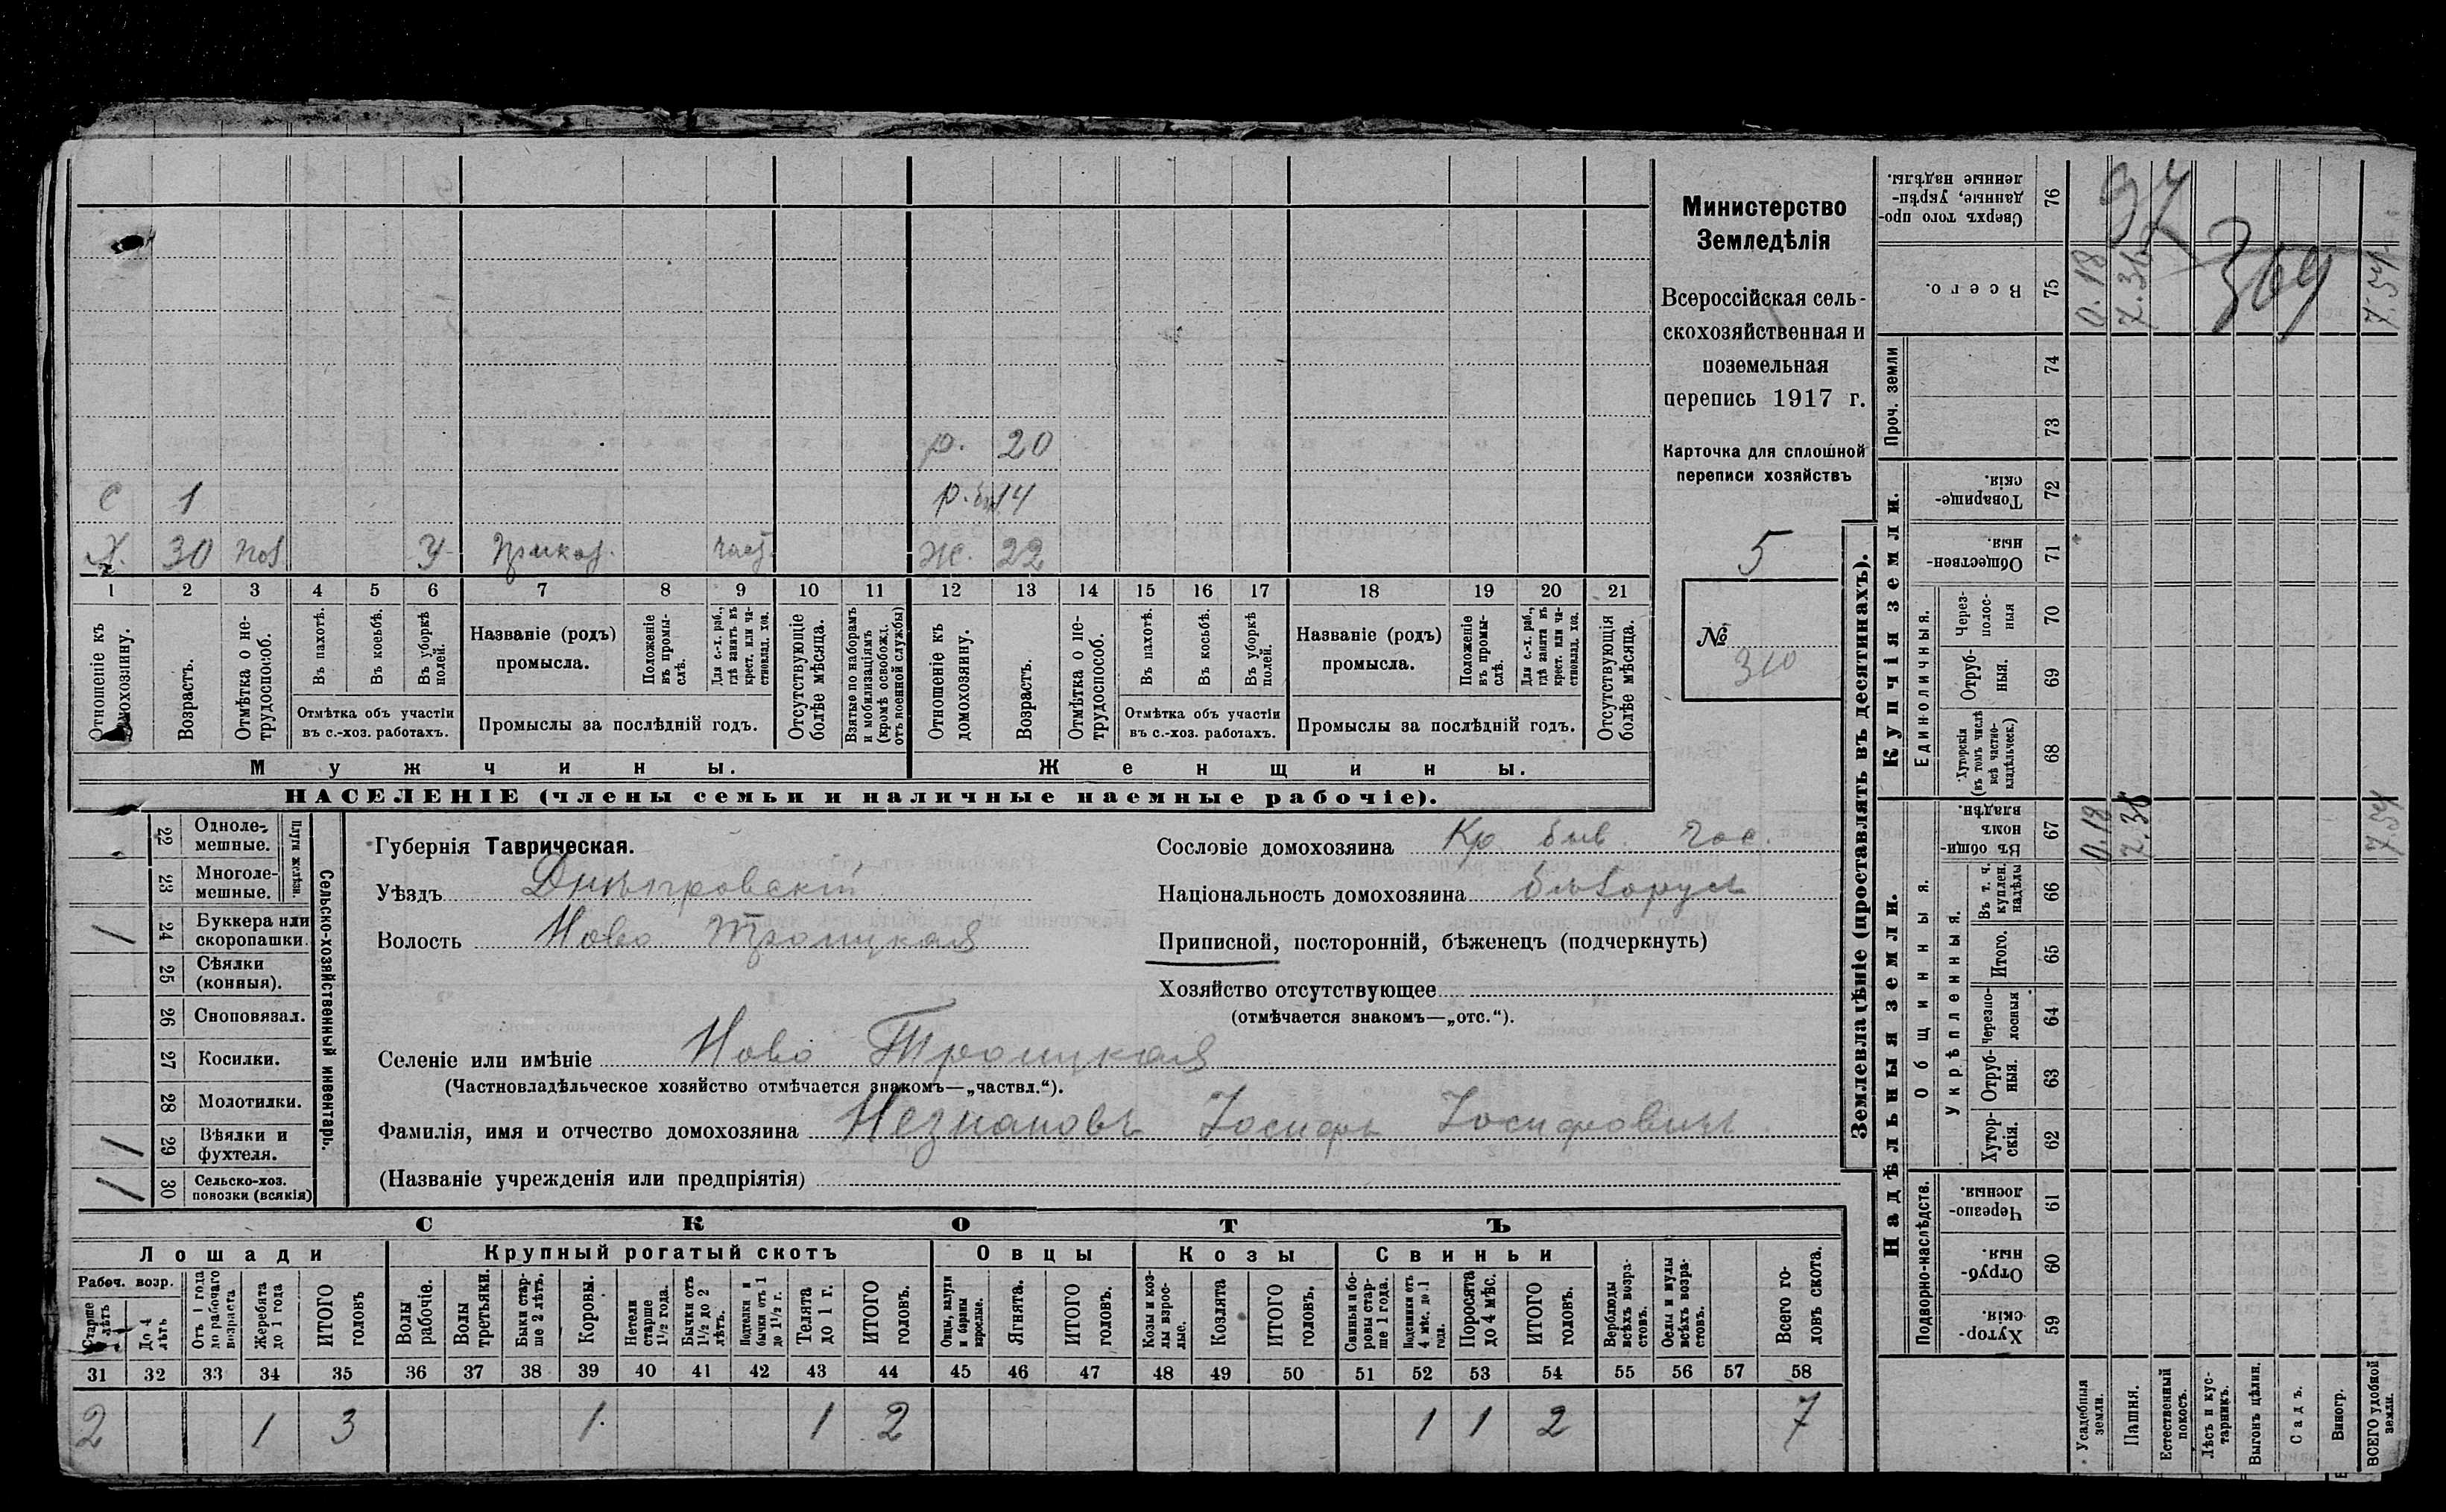 Министерство
Земледѣлія
Всероссійская сель-
скохозяйственная и
поземельная
перепись 1917 г.
Карточка для сплошной
переписи хозяйствъ
5
№
310
р. 20
С 1
р. 14
Х. 30 У Ж. 22
1 2 3 4 5 6 7 8 9 10 11 12 13 14 15 16 17 18 19 20 21
Отношеніе къ домохозяину.
Возрастъ.
Отмѣтка о не-
трудоспособ.
Въ пахотѣ.
Въ косьбѣ.
Въ уборкѣ
полей.
Отмѣтка объ участіи
въ с.-хоз. работахъ.
Названіе (родъ)
промысла.
Положеніе
въ промы-
слѣ.
Для с.-х. раб.,
гдѣ занятъ въ
крест. или ча-
стновлад. хоз.
Промыслы за послѣдній годъ.
Отсутствующіе
болѣе мѣсяца.
Взятые по наборамъ
и мобилизаціямъ
(кромѣ освобожд.
отъ военной службы)
Отношеніе къ
домохозяину.
Возрастъ.
Отмѣтка о не-
трудоспособ.
Въ пахотѣ.
Въ косьбѣ.
Въ уборкѣ
полей.
Отмѣтка объ участіи
въ с.-хоз. работахъ.
Названіе (родъ)
промысла.
Положеніе
въ промы-
слѣ.
Для с.-х. раб.,
гдѣ занята въ
крест. или ча-
стновлад. хоз.
Промыслы за послѣдній годъ.
Отсутствующія
болѣе мѣсяца.
Мужчины.
Женщины.
НАСЕЛЕНІЕ (члены семьи и наличные наемные рабочіе).
Сельско-хозяйственный инвентарь.
Плуги желѣзн.
22 Одноле-
мешные.
23 Многоле-
мешные.
1 24 Буккера или
скоропашки.
25 Сѣялки
(конныя).
26 Сноповязал.
27 Косилки.
28 Молотилки.
1 29 Вѣялки и
фухтеля.
1 30 Сельско-хоз.
повозки (всякія)
Губернія Таврическая.
Уѣздъ Днѣпровскій
Волость Ново Троицкая
Селеніе или имѣніе Ново Троицкая
(Частновладѣльческое хозяйство отмѣчается знакомъ—„частвл.“).
Фамилія, имя и отчество домохозяина Незнановъ Іосифъ Іосифовичъ
(Названіе учрежденія или предпріятія)
Сословіе домохозяина Кр. быв. гос.
Національность домохозяина бѣлорусъ
Приписной, посторонній, бѣженецъ (подчеркнуть)
Хозяйство отсутствующее
(отмѣчается знакомъ—„отс.“).
СКОТЪ
Лошади
Крупный рогатый скотъ
Овцы
Козы
Свиньи
Рабоч. возр.
Старше
4 лѣтъ
До 4
лѣтъ
Отъ 1 года
до рабочаго
возраста
Жеребята
до 1 года
ИТОГО
головъ
Волы
рабочіе.
Волы
третьяки.
Быки стар-
ше 2 лѣтъ.
Коровы.
Нетели
старше
1½ года.
Бычки отъ
1½ до 2
лѣтъ.
Подтелки и
бычки отъ 1
до 1½ г.
Телята
до 1 г.
ИТОГО
головъ.
Овцы, валухи
и бараны
взрослые.
Ягнята.
ИТОГО
головъ.
Козы и коз-
лы взрос-
лые.
Козлята
ИТОГО
головъ.
Свиньи и бо-
ровы стар-
ше 1 года.
Подсвинки отъ
4 мѣс. до 1
года.
Поросята
до 4 мѣс.
ИТОГО
головъ.
Верблюды
всѣхъ возра-
стовъ.
Ослы и мулы
всѣхъ возра-
стовъ.
Всего го-
ловъ скота.
31 32 33 34 35 36 37 38 39 40 41 42 43 44 45 46 47 48 49 50 51 52 53 54 55 56 57 58
2 1 3 1 1 2 1 1 2 7
Землевладѣніе (проставлять въ десятинахъ).
Надѣльныя земли.
Купчія земли.
Проч. земли
Подворно-наслѣдств.
Общинныя.
Укрѣпленныя.
Единоличныя.
Сверхъ того про-
данные, укрѣп-
ленные надѣлы.
76
Всего.
75 0.18 7.36 7.54
74
73
Товарище-
скія.
72
Обществен-
ныя.
71
Через-
полос-
ныя
70
Отруб-
ныя.
69
Хуторскія
(въ томъ числѣ
всѣ частно-
владѣльческ.)
68
Въ общи-
номъ
владѣн.
67 0.18 7.36 7.54
Въ т. ч.
куплен.
надѣлы
66
Итого.
65
Черезпо-
лосныя
64
Отруб-
ныя.
63
Хутор-
скія.
62
Черезпо-
лосныя.
61
Отруб-
ныя.
60
Хутор-
скія.
59
Усадебныя
земли.
Пашня.
Естественный
покосъ.
Лѣсъ и кус-
тарникъ.
Выгонъ цѣлин.
Садъ.
Виногр.
ВСЕГО удобной
земли.
369